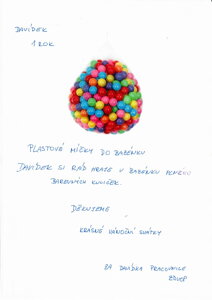 DAVÍDEK
1 ROK
PLASTOVÉ MÍČKY DO BAZÉNKU
DAVÍDEK SI RÁD HRAJE V BAZÉNKU PLNÉM
BAREVNÝCH KULIČEK.
DĚKUJEME
KRÁSNÉ VÁNOČNÍ SVÁTKY
ZA DAVÍDKA PRACOVNICE